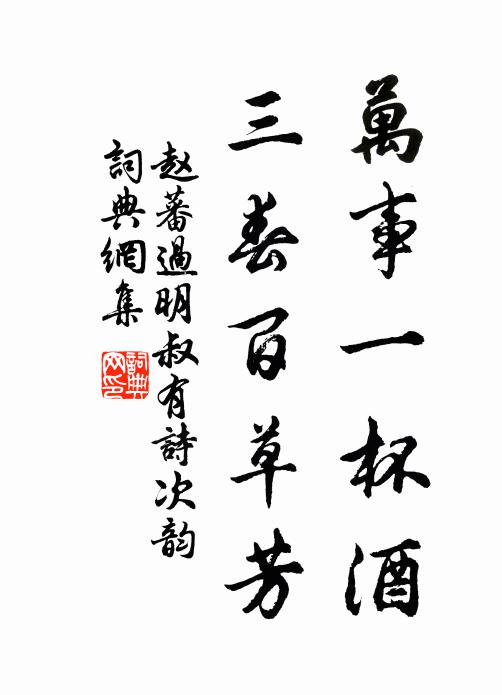 萬事一杯酒
三春百草芳
赵蕃過明叔有詩次韵
詞典網集
詞典
网印